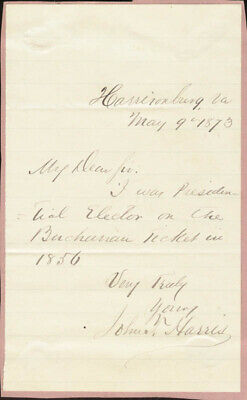 Harrisonburg, Va
May 9th 1873
My Dear Sir.
I was Presiden-
tial Elector on the
Buchanan ticket in
1856
Very Truly
Yours
John T Harris